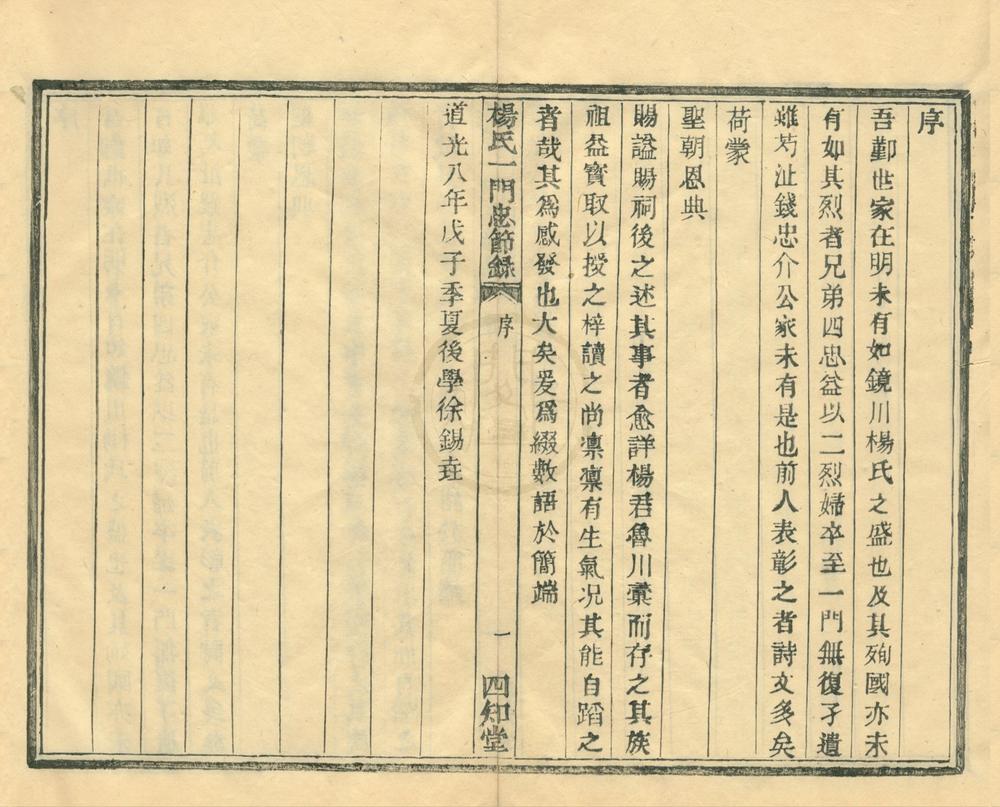 序
吾鄞世家在明未有如鏡川楊氏之盛也及其殉國亦未
有如其烈者兄弟四忠益以二烈婦卒至一門無復孑遺
雖芍沚錢忠介公家未有是也前人表彰之者詩文多矣
荷蒙
聖朝恩典
賜謚賜祠後之述其事者愈詳楊君魯川彚而存之其族
祖益寳取以授之梓讀之尚凛凛有生氣况其能自蹈之
者哉其爲感發也大矣爰爲綴數語於簡端
楊氏一門忠節錄 序 一 四知堂
道光八年戊子季夏後學徐錫垚